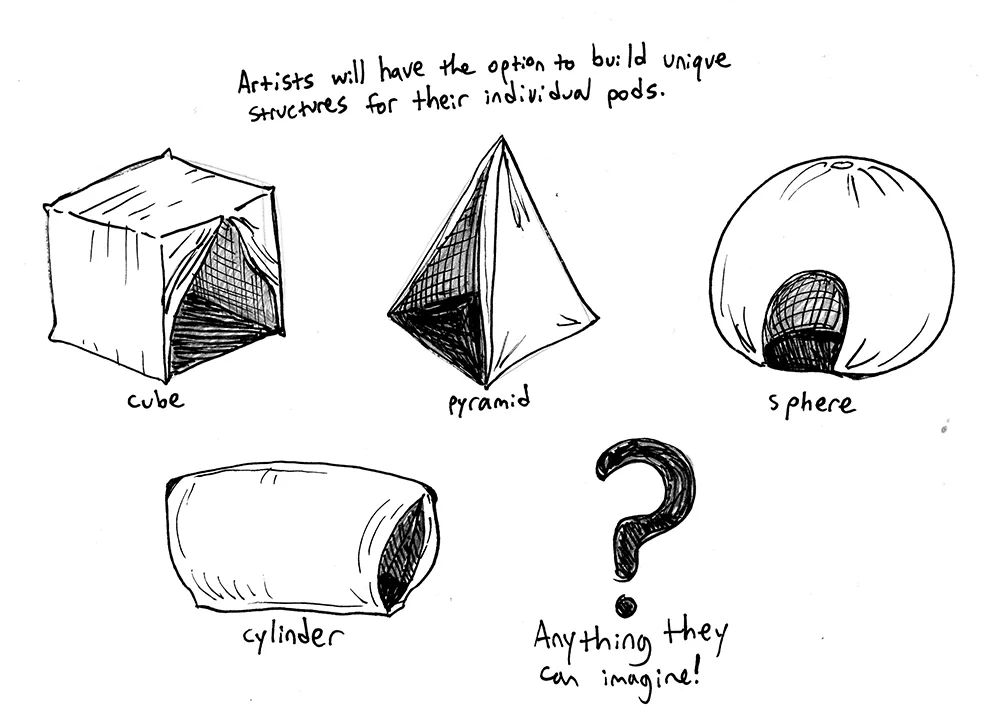 Artists will have the option to build unique
structures for their individual pods.
cube
pyramid
sphere
cylinder
Anything they
can imagine!